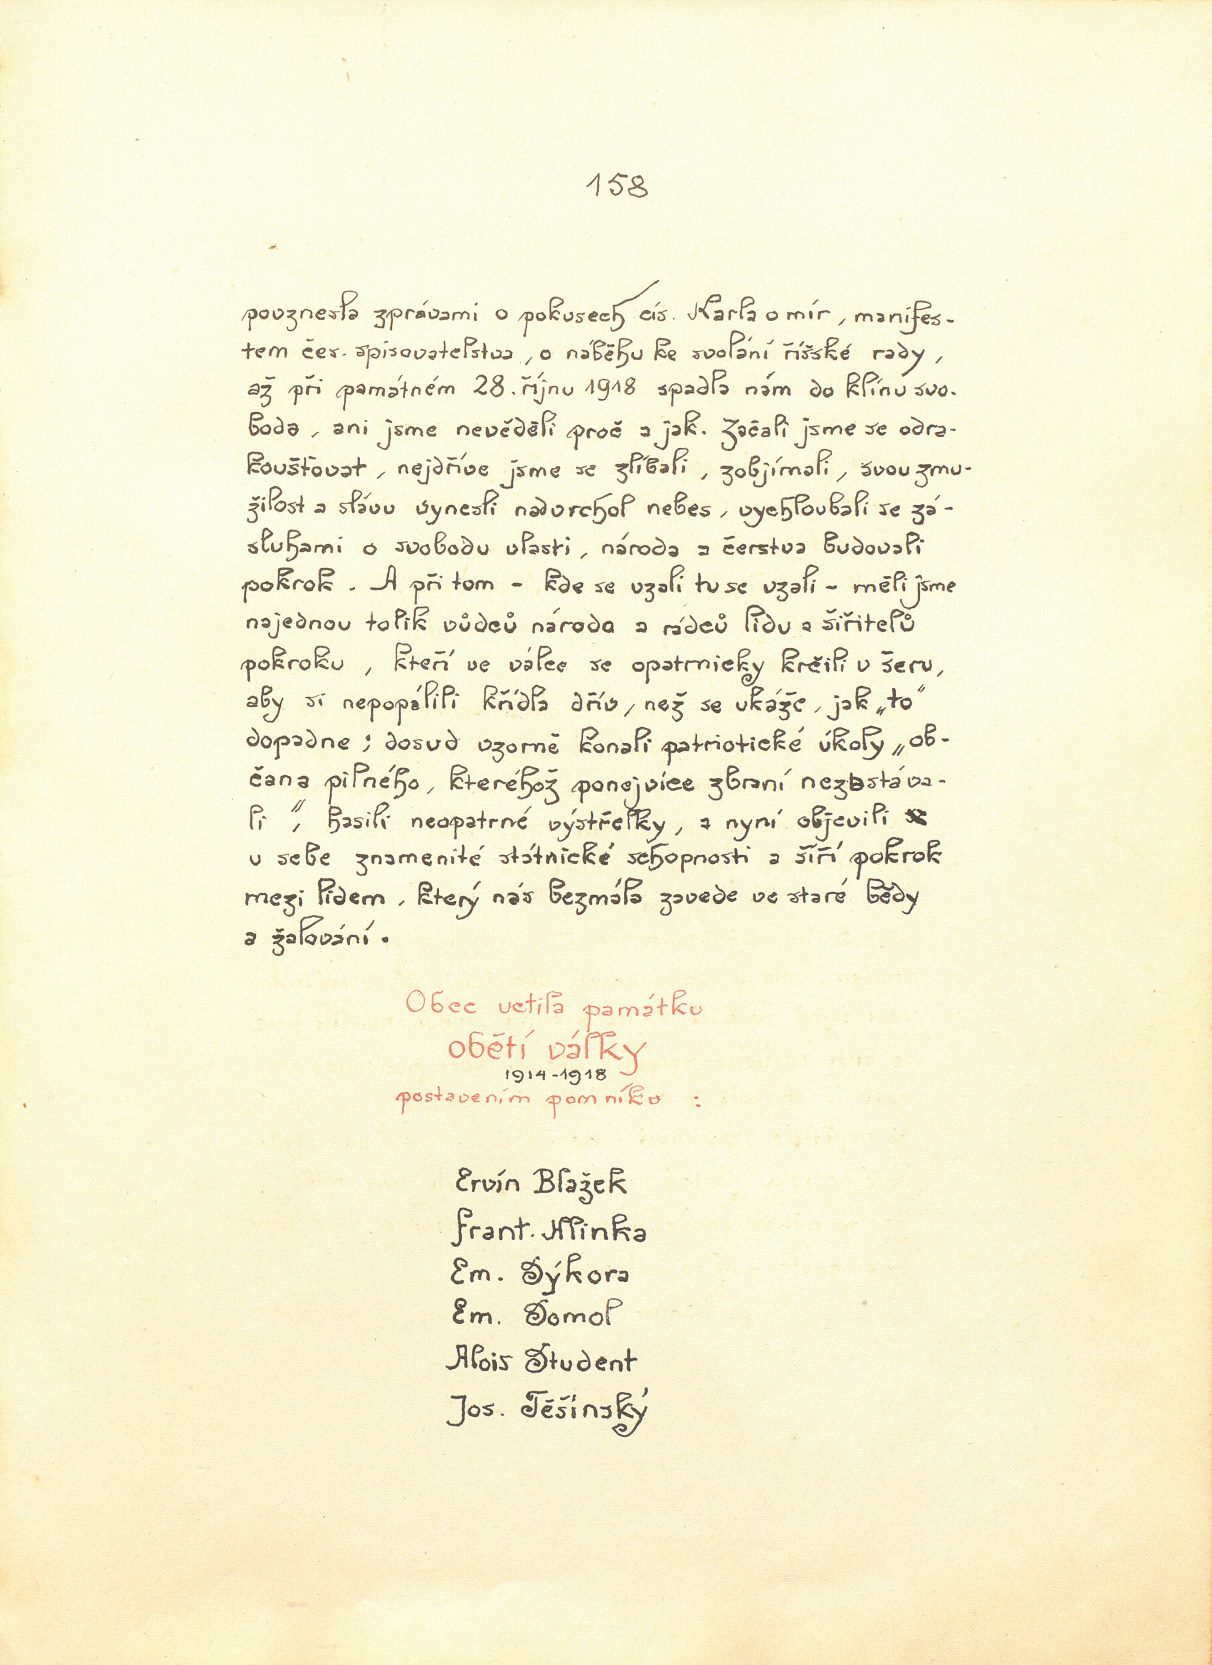 158
povznesla zprávami o pokusech cís. Karla o mír, manifes-
tem čes. spisovatelstva, o náběhu ke svolání říšské rady,
až při památném 28. říjnu 1918 spadla nám do klínu svo-
boda, ani jsme nevěděli proč a jak. Začali jsme se odra-
koušťovat, nejdříve jsme se zlíbali, zobjímali, svou zmu-
žilost a slávu vynesli nad vrchol nebes, vychloubali se zá-
sluhami o svobodu vlasti, národa a čerstva budovali
pokrok. A při tom - kde se vzali tu se vzali - měli jsme
najednou tolik vůdců národa a rádců lidu a šiřitelů
pokroku, kteří ve válce se opatrnicky krčili v šeru,
aby si nepopálili křídla dřív, než se ukáže, jak „to"
dopadne; dosud vzorně konali patriotické úkoly „ob-
čana pilného, kteréhož ponejvíce zbraní nezastáva-
li", hasili neopatrné výstřelky, a nyní objevili
v sebe znamenité státnické schopnosti a šíří pokrok
mezi lidem, který nás bezmála zavede ve staré bědy
a žalování.
Obec uctila památku
obětí války
1914-1918
postavením pomníku :
Ervín Blažek
Frant. Hlinka
Em. Sýkora
Em. Šomol
Alois Študent
Jos. Těšínský